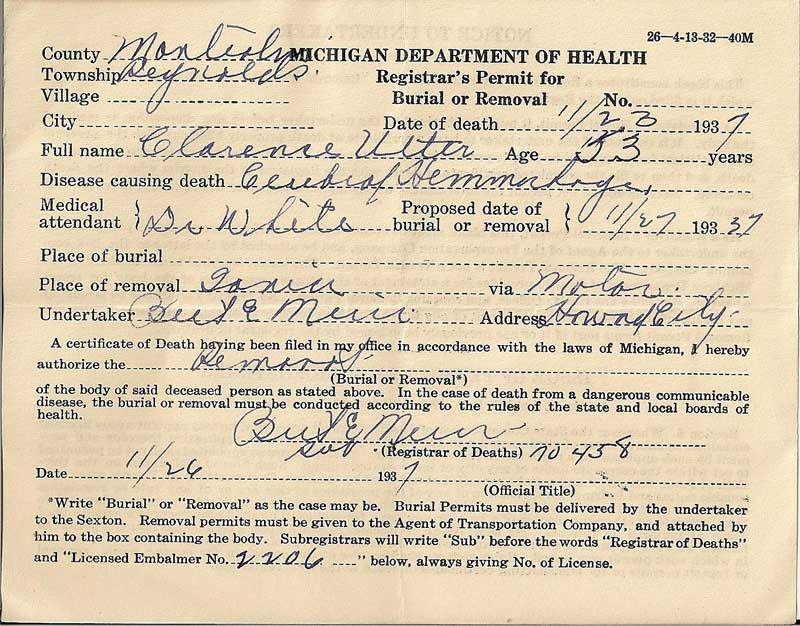 26—4-13-32—40M
County Montcalm MICHIGAN DEPARTMENT OF HEALTH
Township Reynolds. Registrar's Permit for
Village Burial or Removal No.
City Date of death 11/23 1937
Full name Clarence Utter Age 53 years
Disease causing death Cerebral Hemmorhage,
Medical attendant } Dr White Proposed date of burial or removal } 11/27 193 37
Place of burial
Place of removal Ionia via Motor.
Undertaker E Meir Address Howard City
A certificate of Death having been filed in my office in accordance with the laws of Michigan, I hereby
authorize the Removal
(Burial or Removal*)
of the body of said deceased person as stated above. In the case of death from a dangerous communicable
disease, the burial or removal must be conducted according to the rules of the state and local boards of
health.
E Meir
Sub (Registrar of Deaths) no 458
Date 11/26 1937
(Official Title)
*Write "Burial" or "Removal" as the case may be. Burial Permits must be delivered by the undertaker
to the Sexton. Removal permits must be given to the Agent of Transportation Company, and attached by
him to the box containing the body. Subregistrars will write "Sub" before the words "Registrar of Deaths"
and "Licensed Embalmer No. 2206 " below, always giving No. of License.